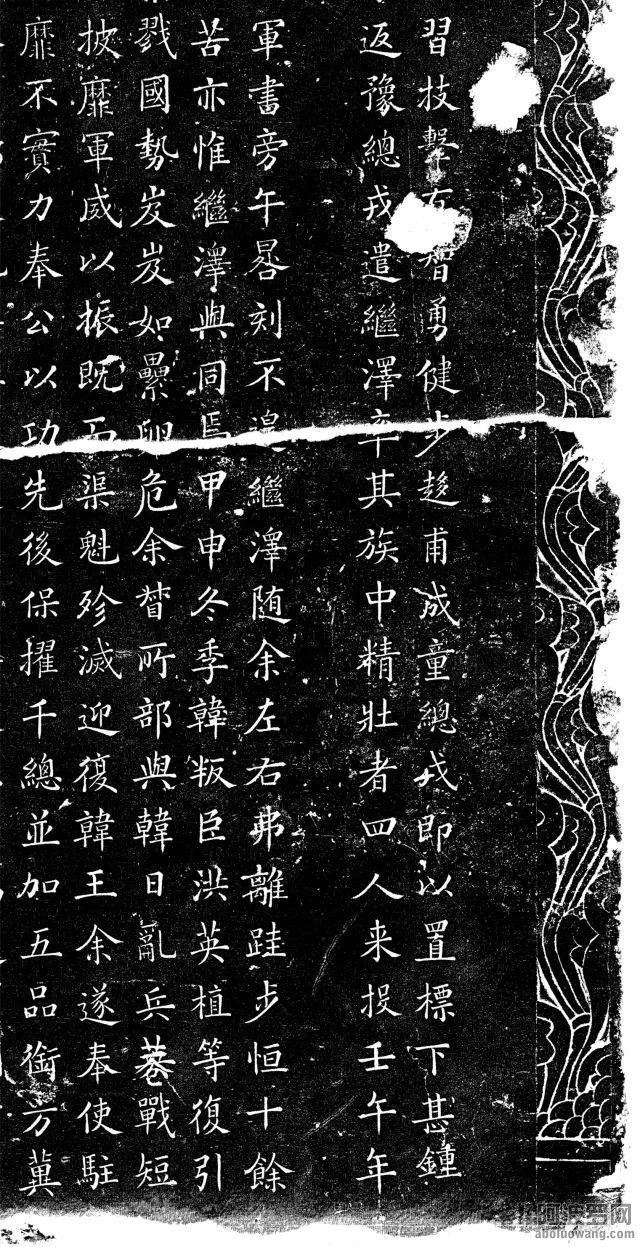 習技擊有智勇健步趍甫成童總戎即以置標下甚鍾
返豫總戎遣繼澤率其族中精壯者四人来投壬午年
軍書旁午晷刻不遑繼澤随余左右弗離跬步恒十餘
苦亦惟繼澤與同焉甲申冬季韓叛臣洪英植等復引
戮國勢岌岌如纍卵危余督所部與韓日亂兵巷戰短
披靡軍威以振既而渠魁殄滅迎復韓王余遂奉使駐
靡不實力奉公以功先後保擢千總並加五品銜方冀
阿波罗网
aboluowang.com